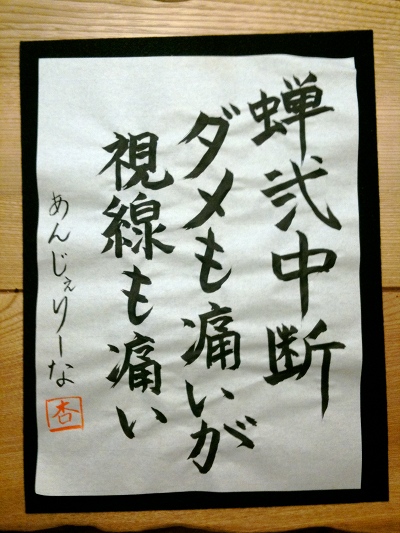 蝉弐中断
ダメも痛いが
視線も痛い
あんじぇりーな
杏